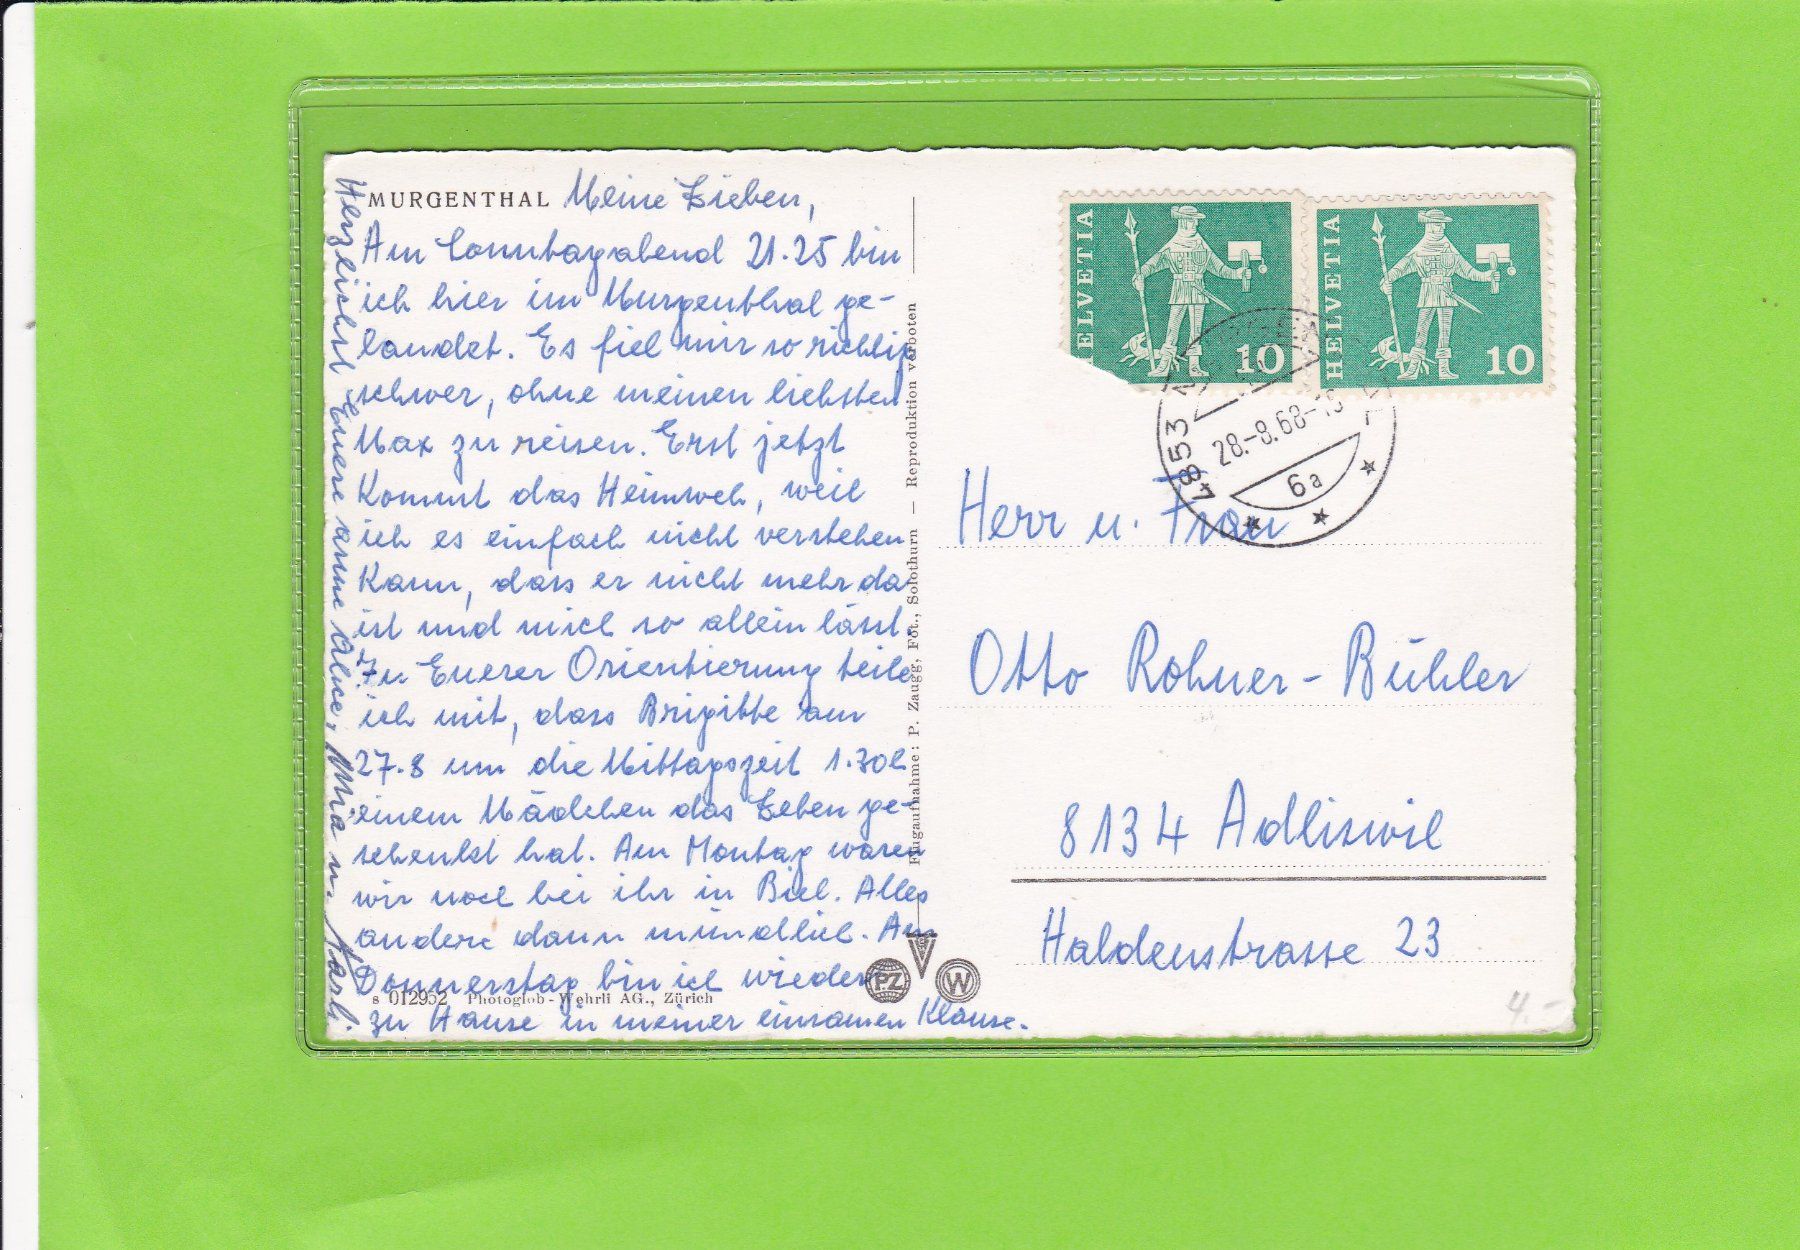 MURGENTHAL Meine Lieben,
Am Sonntagabend 21.25 bin
ich hier im Murgenthal ge-
landet. Es fiel mir so richtig
schwer, ohne meinen liebsten
Max zu reisen. Erst jetzt
kommt das Heimweh, weil
ich es einfach nicht verstehen
kann, dass er nicht mehr da
ist und mich so allein lässt.
Zu Euerer Orientierung teile
ich mit, dass Brigitte am
27.8 um die Mittagszeit 1.30h
einem Mädchen das Leben ge-
schenkt hat. Am Montag waren
wir noch bei ihr in Biel. Alles
andere dann mündlich. Am
Donnerstag bin ich wieder
zu Hause in meiner einsamen Klause.
Herzlichst Euere arme Alice, Mia u. Karl.
s 012952 Photoglob-Wehrli AG., Zürich
Flugaufnahme: P. Zaugg, Fot., Solothurn — Reproduktion verboten
PZ
W
HELVETIA 10
HELVETIA 10
4853
28.-8.68-
6a
Herr u. Frau
Otto Rohner-Bühler
8134 Adliswil
Haldenstrasse 23
4.-